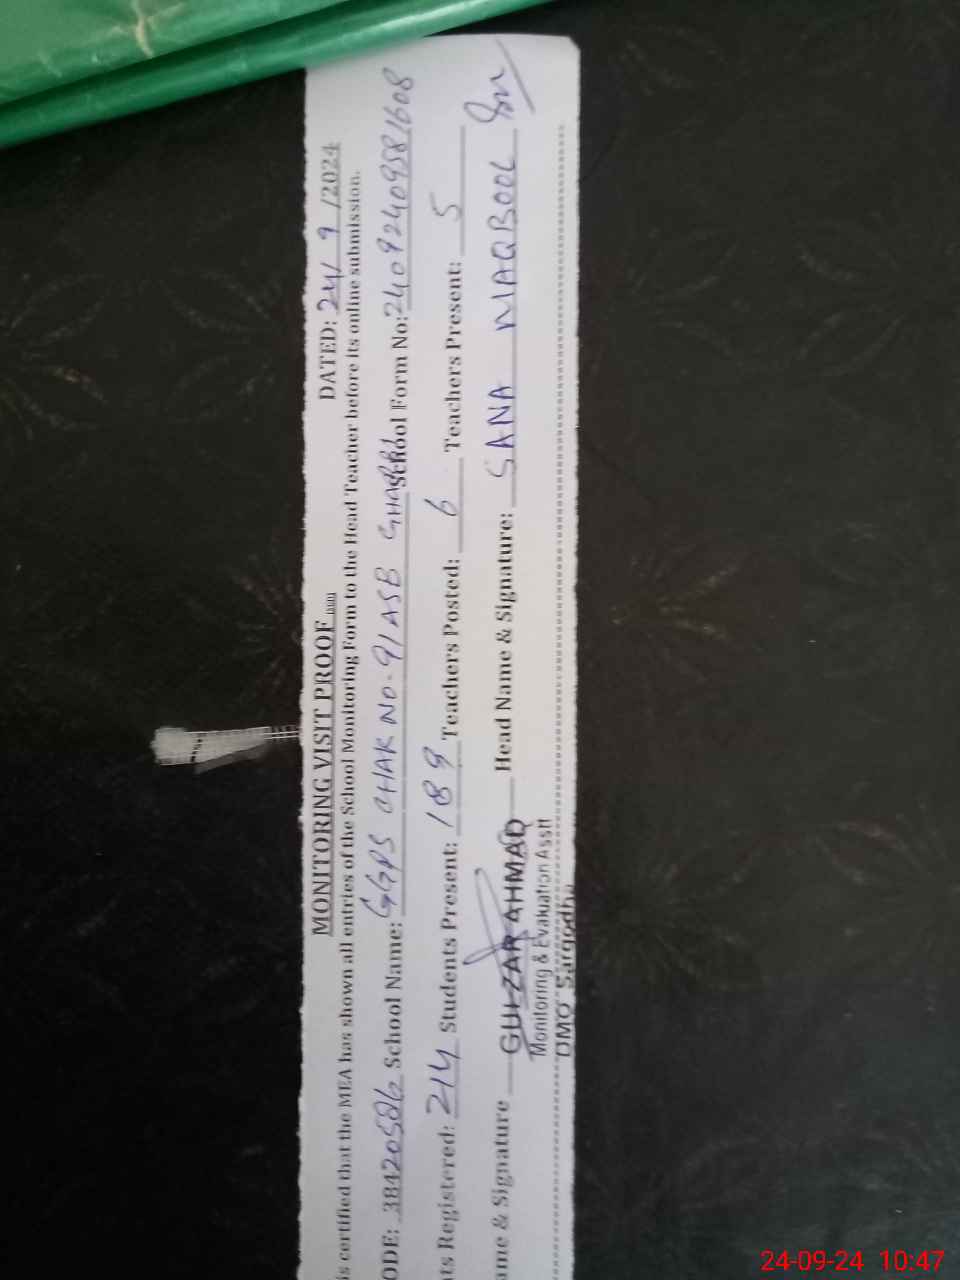 MONITORING VISIT PROOF DATED: 24/ 9 /2024
is certified that the MEA has shown all entries of the School Monitoring Form to the Head Teacher before its online submission.
ODE: 38420506 School Name: GGPS CHAK NO. 91 ASB GHARBI School Form No: 24092409581608
ts Registered: 214 Students Present: 189 Teachers Posted: 6 Teachers Present: 5
me & Signature GULZAR AHMAD Head Name & Signature: SANA MAQBOOL
Monitoring & Evaluation Asstt
DMO Sargodha
24-09-24 10:47